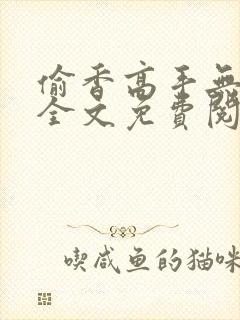 偷香高手無
全文免費閱
喫咸鱼的猫咪